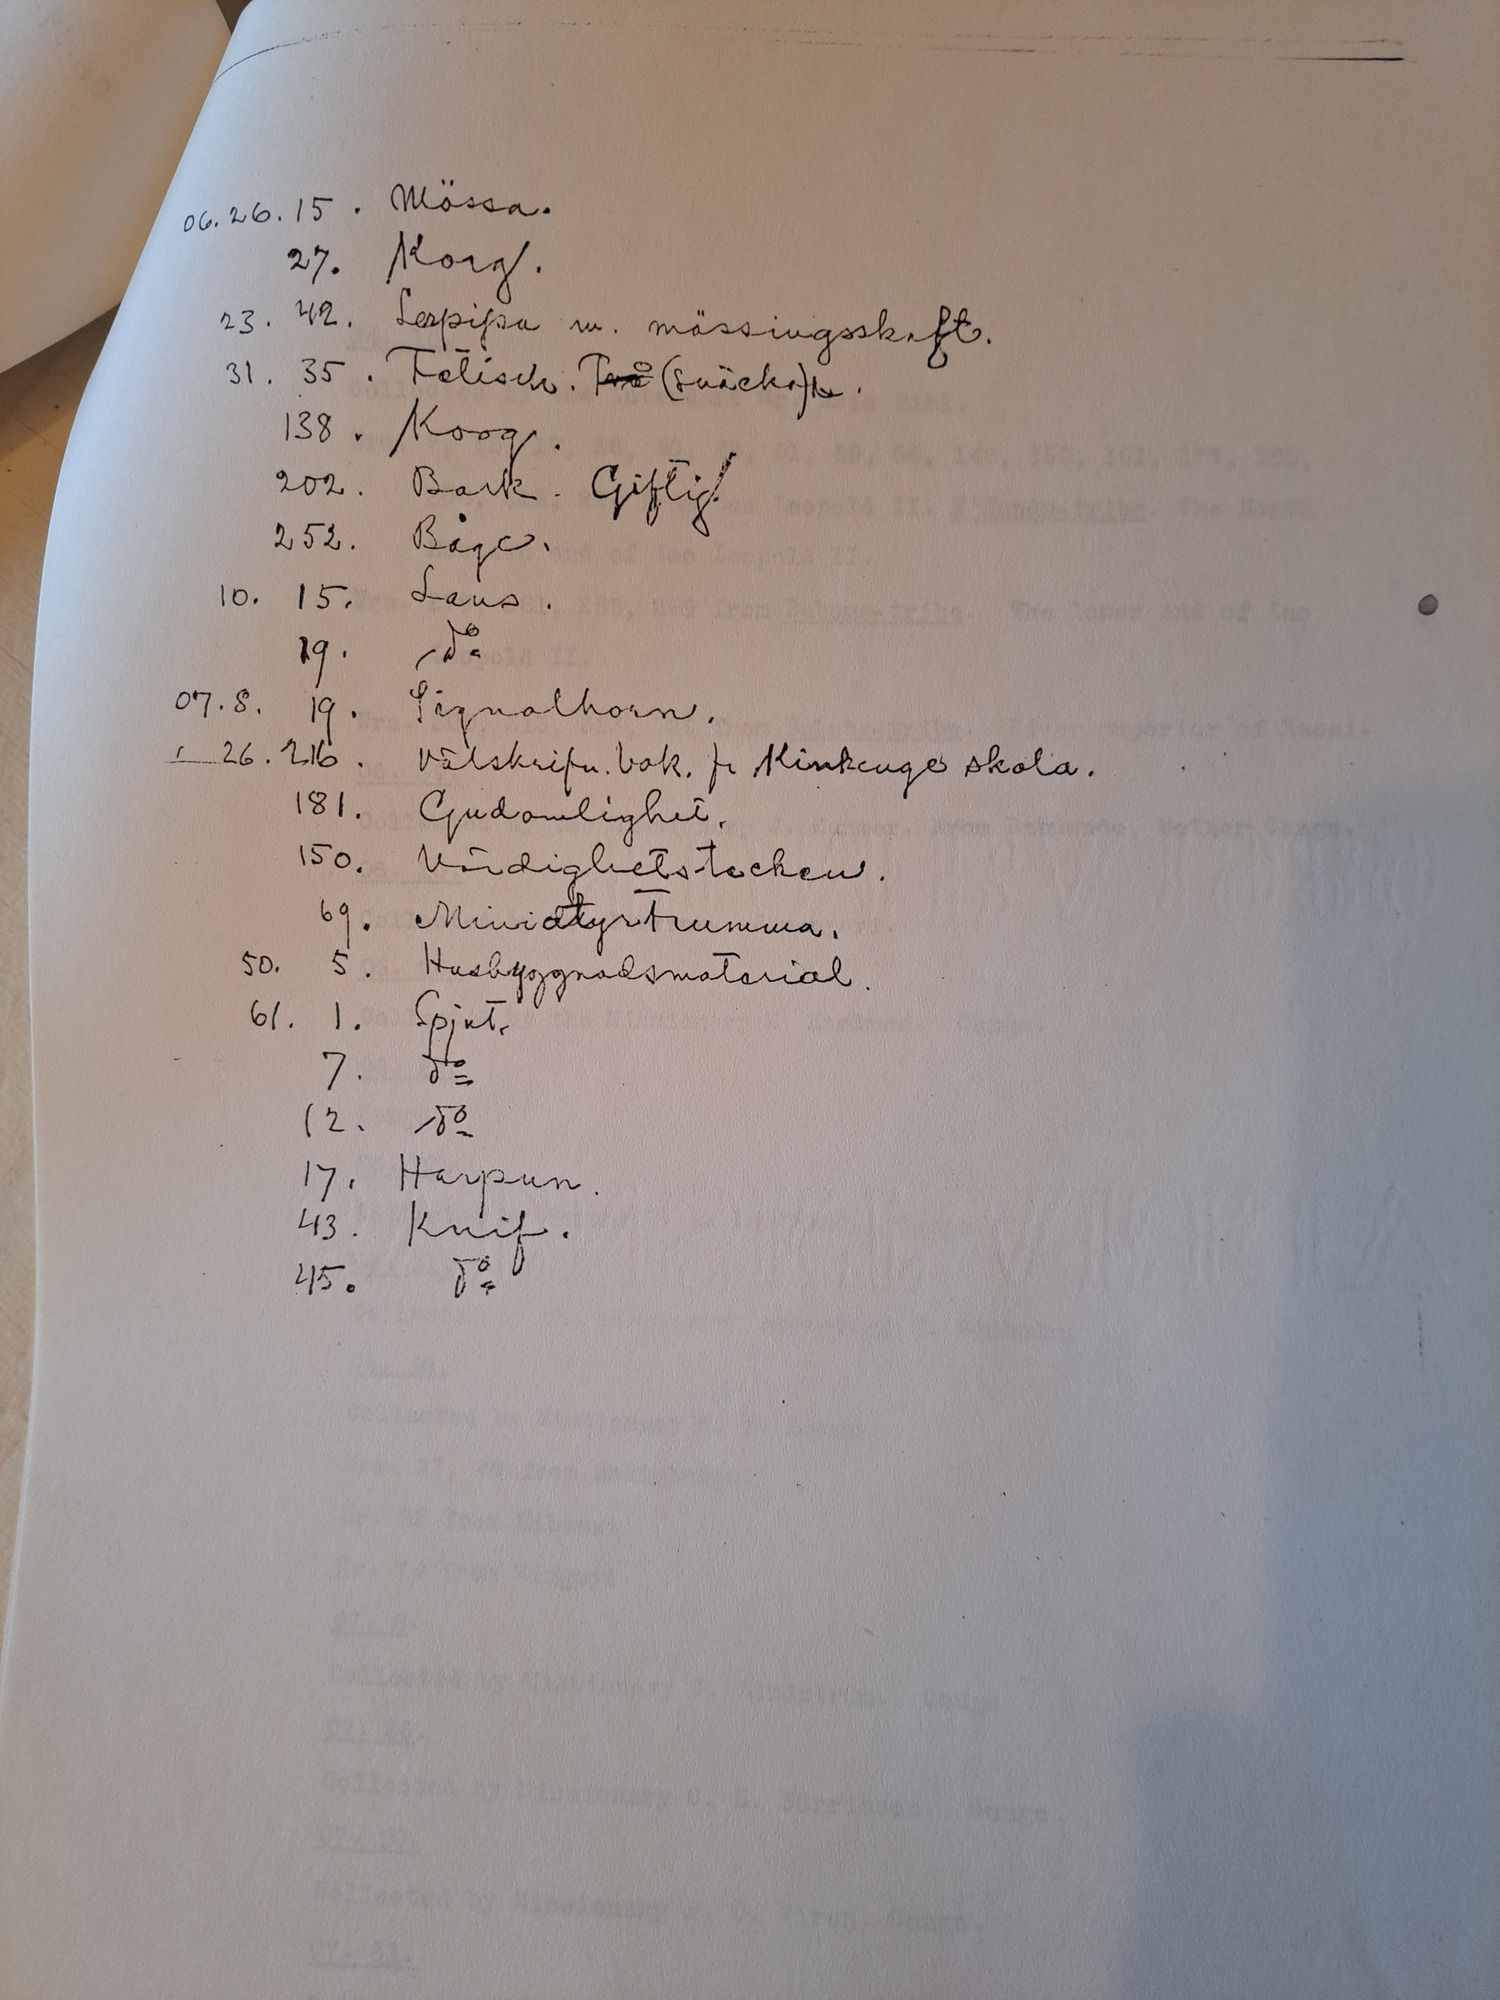 06.26.15. Mössa.
27. Korg.
23. 42. Lerpipa m. mässingsskaft.
31. 35. Fetisch. (snäcka)
138. Korg.
202. Bark. Giftig!
252. Båge.
10. 15. Lans.
19. do
07.8. 19. Signalhorn.
26. 216. Välskrifn. bok. fr Kinkenge skola.
181. Gudomlighet.
150. Värdighetstecken.
69. Miniatyrtrumma.
50. 5. Husbyggnadsmaterial.
61. 1. Spjut.
7. do
12. do
17. Harpun.
43. Knif.
45. do